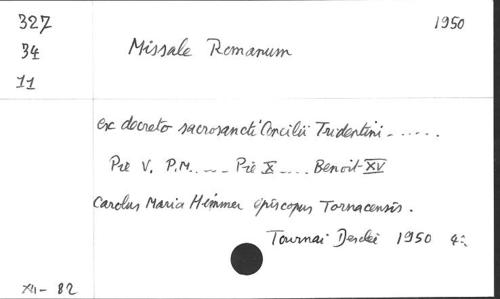 327
34
11
1950
Missale Romanum
ex decreto sacrosancti Concilii Tridentini - ......
Pie V. P.M. ... - Pie X .... Benoit XV
Carolus Maria Himmer episcopus Tornacensis.
Tournai Desclée 1950 4:
XII - 82